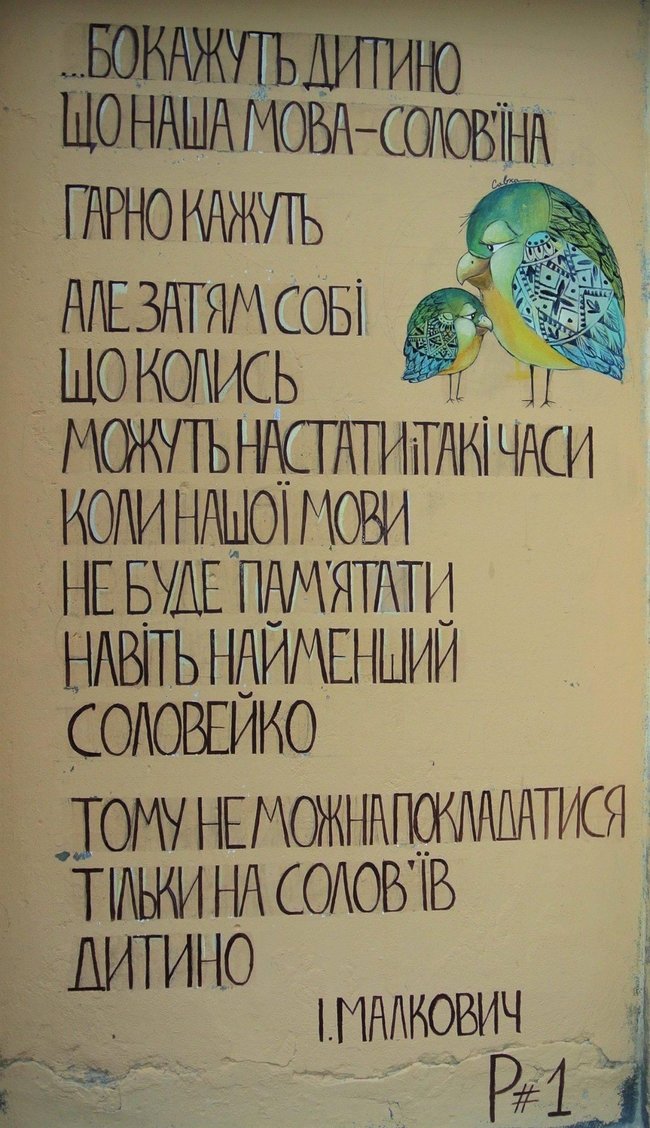 ...БО КАЖУТЬ ДИТИНО
ЩО НАША МОВА – СОЛОВ'ЇНА
ГАРНО КАЖУТЬ
АЛЕ ЗАТЯМ СОБІ
ЩО КОЛИСЬ
МОЖУТЬ НАСТАТИ і ТАКІ ЧАСИ
КОЛИ НАШОЇ МОВИ
НЕ БУДЕ ПАМ'ЯТАТИ
НАВІТЬ НАЙМЕНШИЙ
СОЛОВЕЙКО
ТОМУ НЕ МОЖНА ПОКЛАДАТИСЯ
ТІЛЬКИ НА СОЛОВ'ЇВ
ДИТИНО
І. МАЛКОВИЧ
P#1